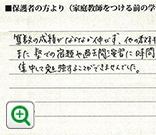 ■保護者の方より（家庭教師をつける前の学
算数の成績がなかなか伸びず、他の教科
また塾での宿題や過去問演習に時間
集中して勉強することができませんでした。